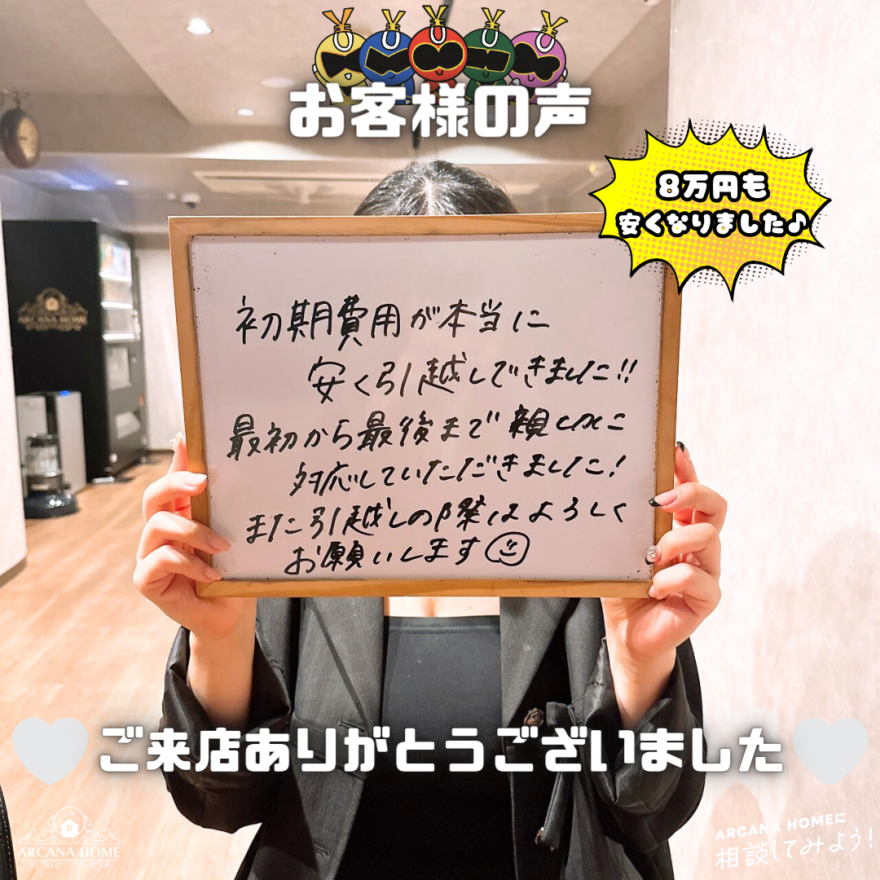 お客様の声
8万円も
安くなりました♪
ARCANA HOME
初期費用が本当に
安く引越しできました!!
最初から最後まで親しみに
対応していただきました!
また引越しの際はよろしく
お願いします
ご来店ありがとうございました
ARCANA HOME
ARCANA HOMEに
相談してみよう!